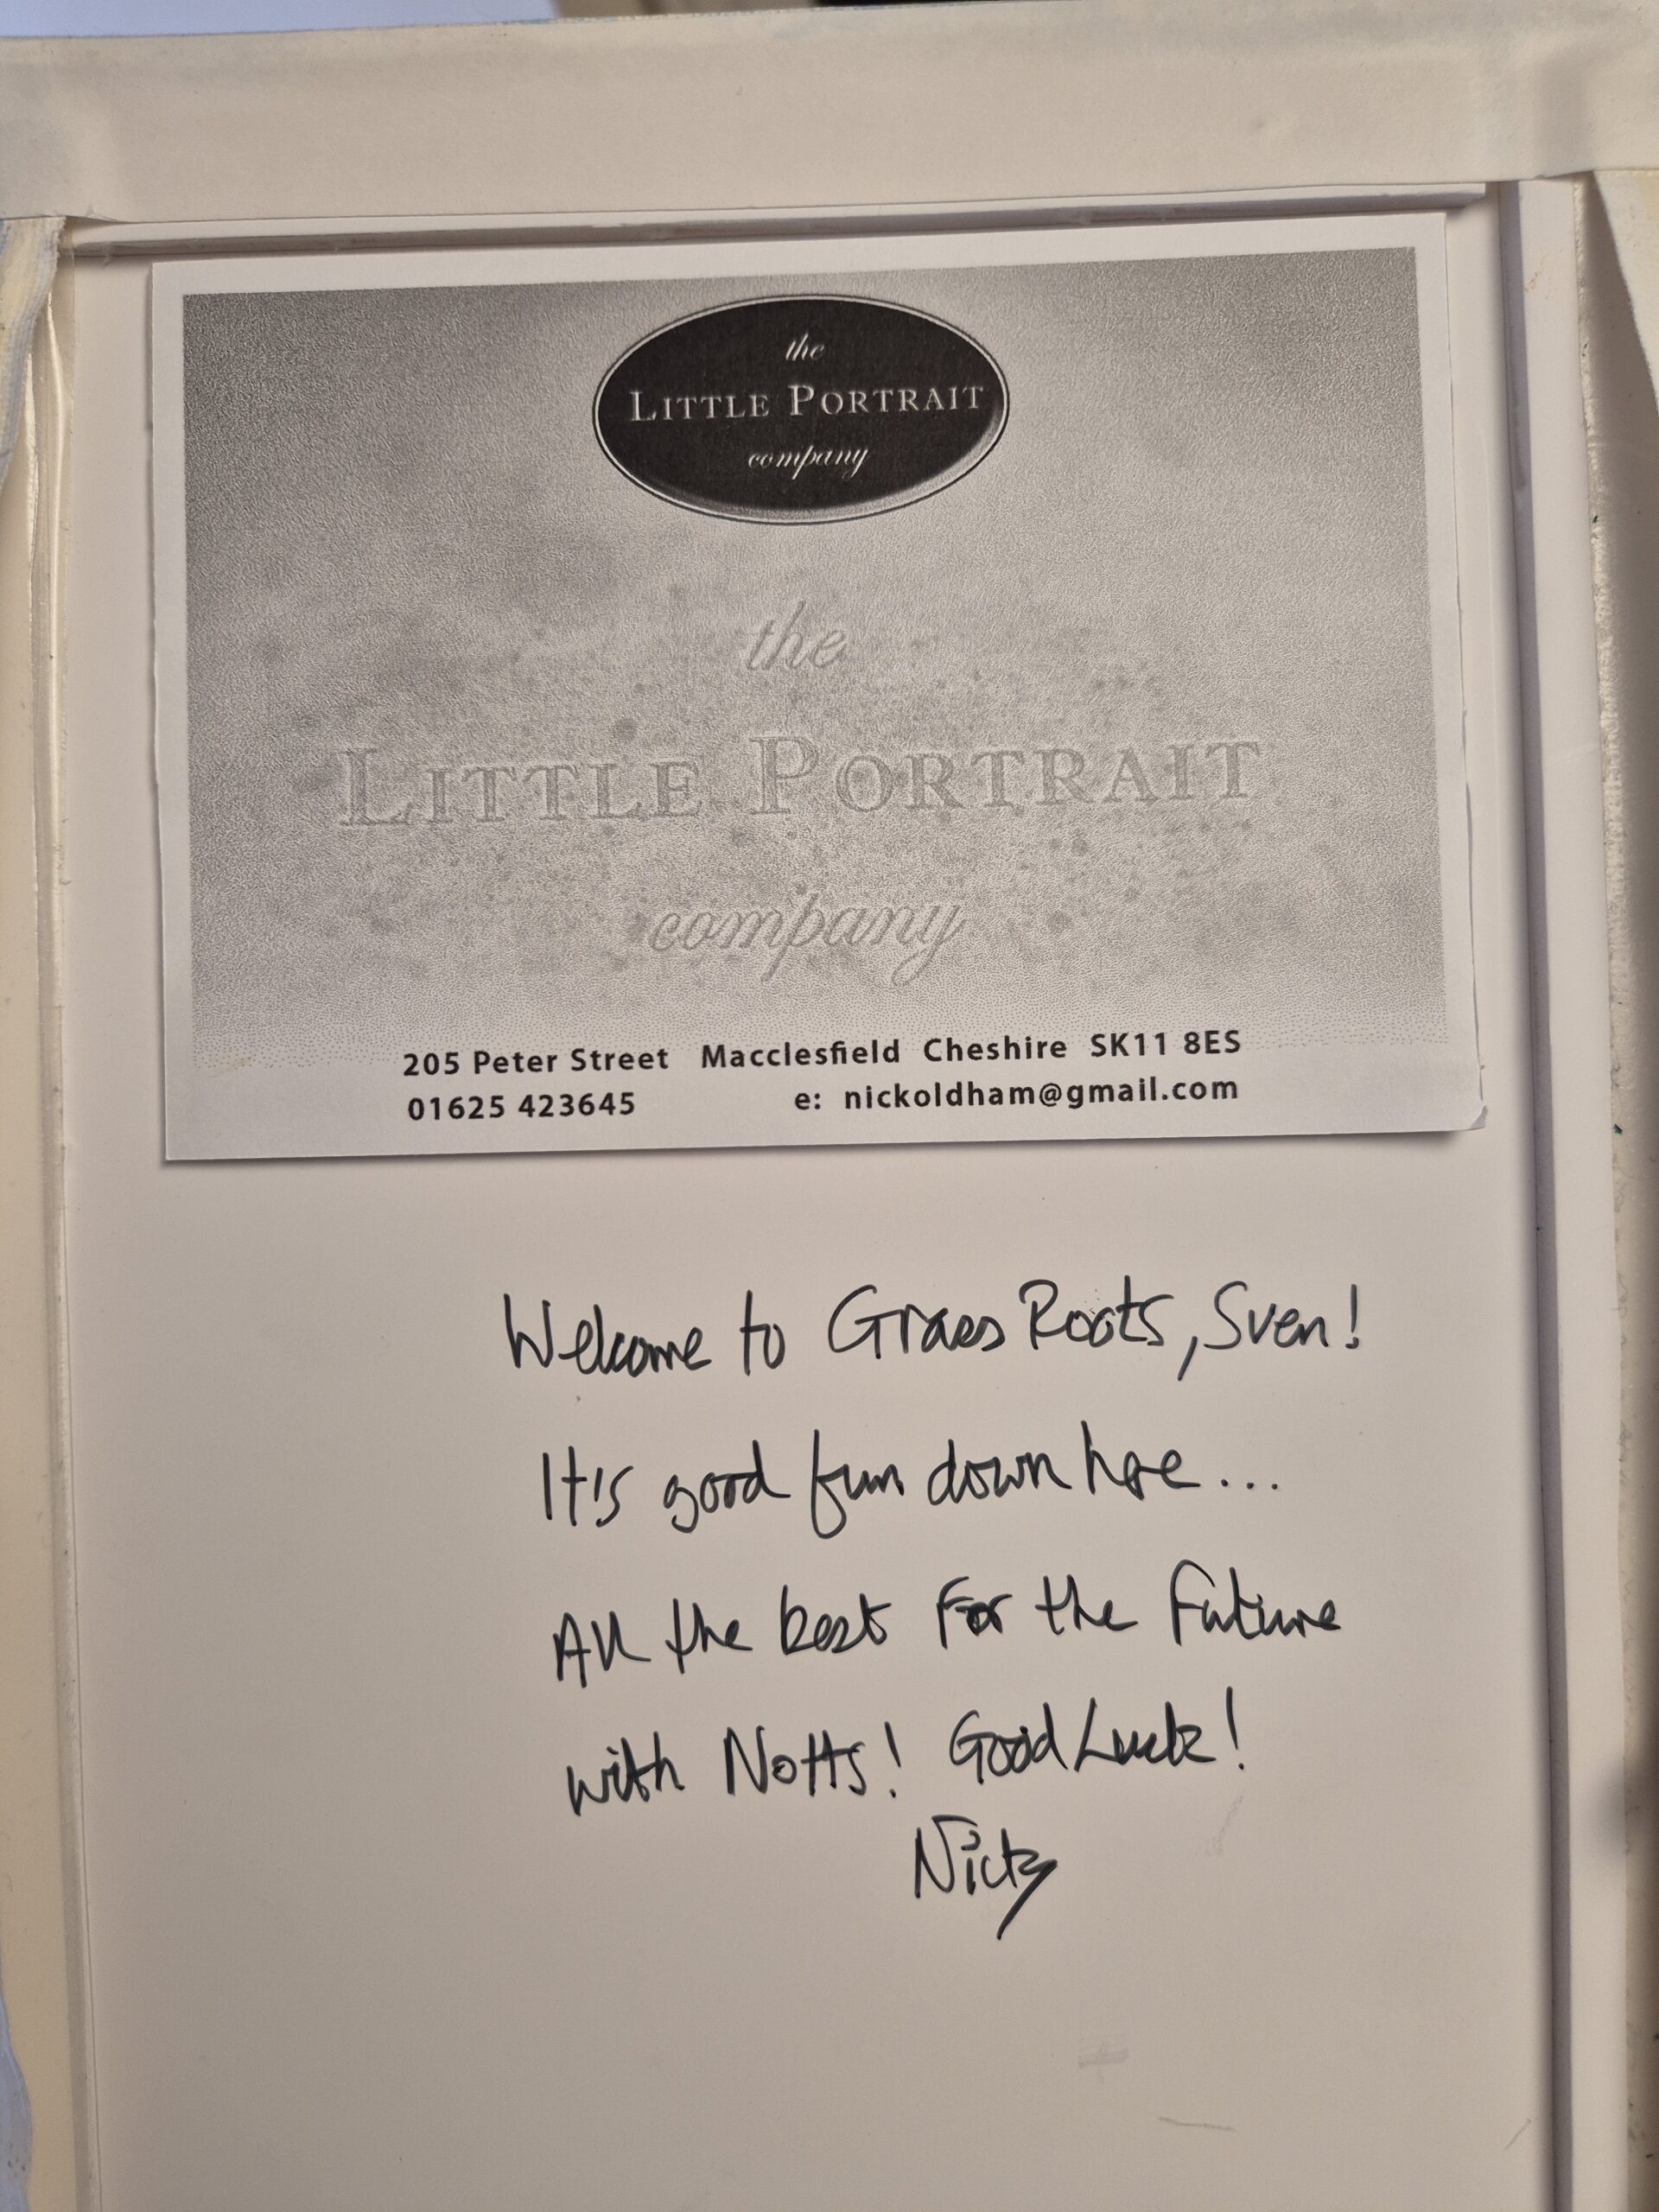 the
LITTLE PORTRAIT
company
the
LITTLE PORTRAIT
company
205 Peter Street Macclesfield Cheshire SK11 8ES
01625 423645 e: nickoldham@gmail.com
Welcome to Grass Roots, Sven!
It's good fun down here...
All the best For the Future
with Notts! Good Luck!
Nick